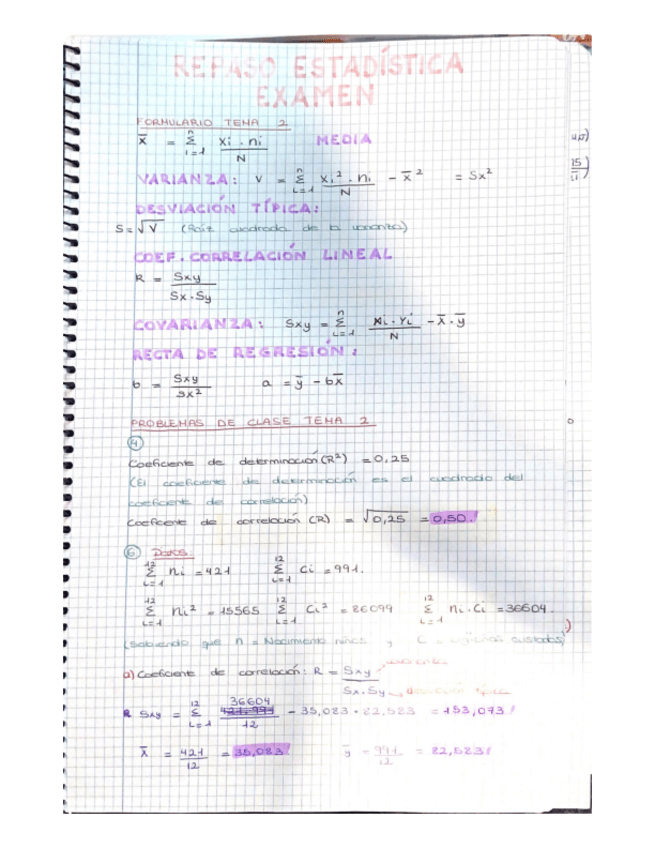 REPASO ESTADÍSTICA
EXAMEN
FORMULARIO TEMA 2
x̄ = Σ(i=1, n) xi · ni / N MEDIA
VARIANZA: V = Σ(i=1, n) xi² · ni / N - x̄² = Sx²
DESVIACIÓN TÍPICA:
S = √V (Raíz cuadrada de la varianza)
COEF. CORRELACIÓN LINEAL
R = Sxy / Sx · Sy
COVARIANZA: Sxy = Σ(i=1, n) xi · Yi / N - x̄ · ȳ
RECTA DE REGRESIÓN:
b = Sxy / Sx² a = ȳ - bx̄
PROBLEMAS DE CLASE TEMA 2
④
Coeficiente de determinación (R²) = 0,25
(El coeficiente de determinación es el cuadrado del
coeficiente de correlación)
Coeficiente de correlación (R) = √0,25 = 0,50.
⑥ Datos:
Σ(i=1, 12) Ni = 421 Σ(i=1, 12) Ci = 991.
Σ(i=1, 12) Ni² = 15565 Σ(i=1, 12) Ci² = 86099 Σ(i=1, 12) Ni · Ci = 36604.
(Sabiendo que n = Nacimiento niños y C =
a) Coeficiente de correlación: R = Sxy / Sx · Sy
desviación típica
R Sxy = Σ(i=1, 12) 36604 / 12 - 35,083 · 82,583 = 153,073
x̄ = 421 / 12 = 35,083 ȳ = 991 / 12 = 82,583